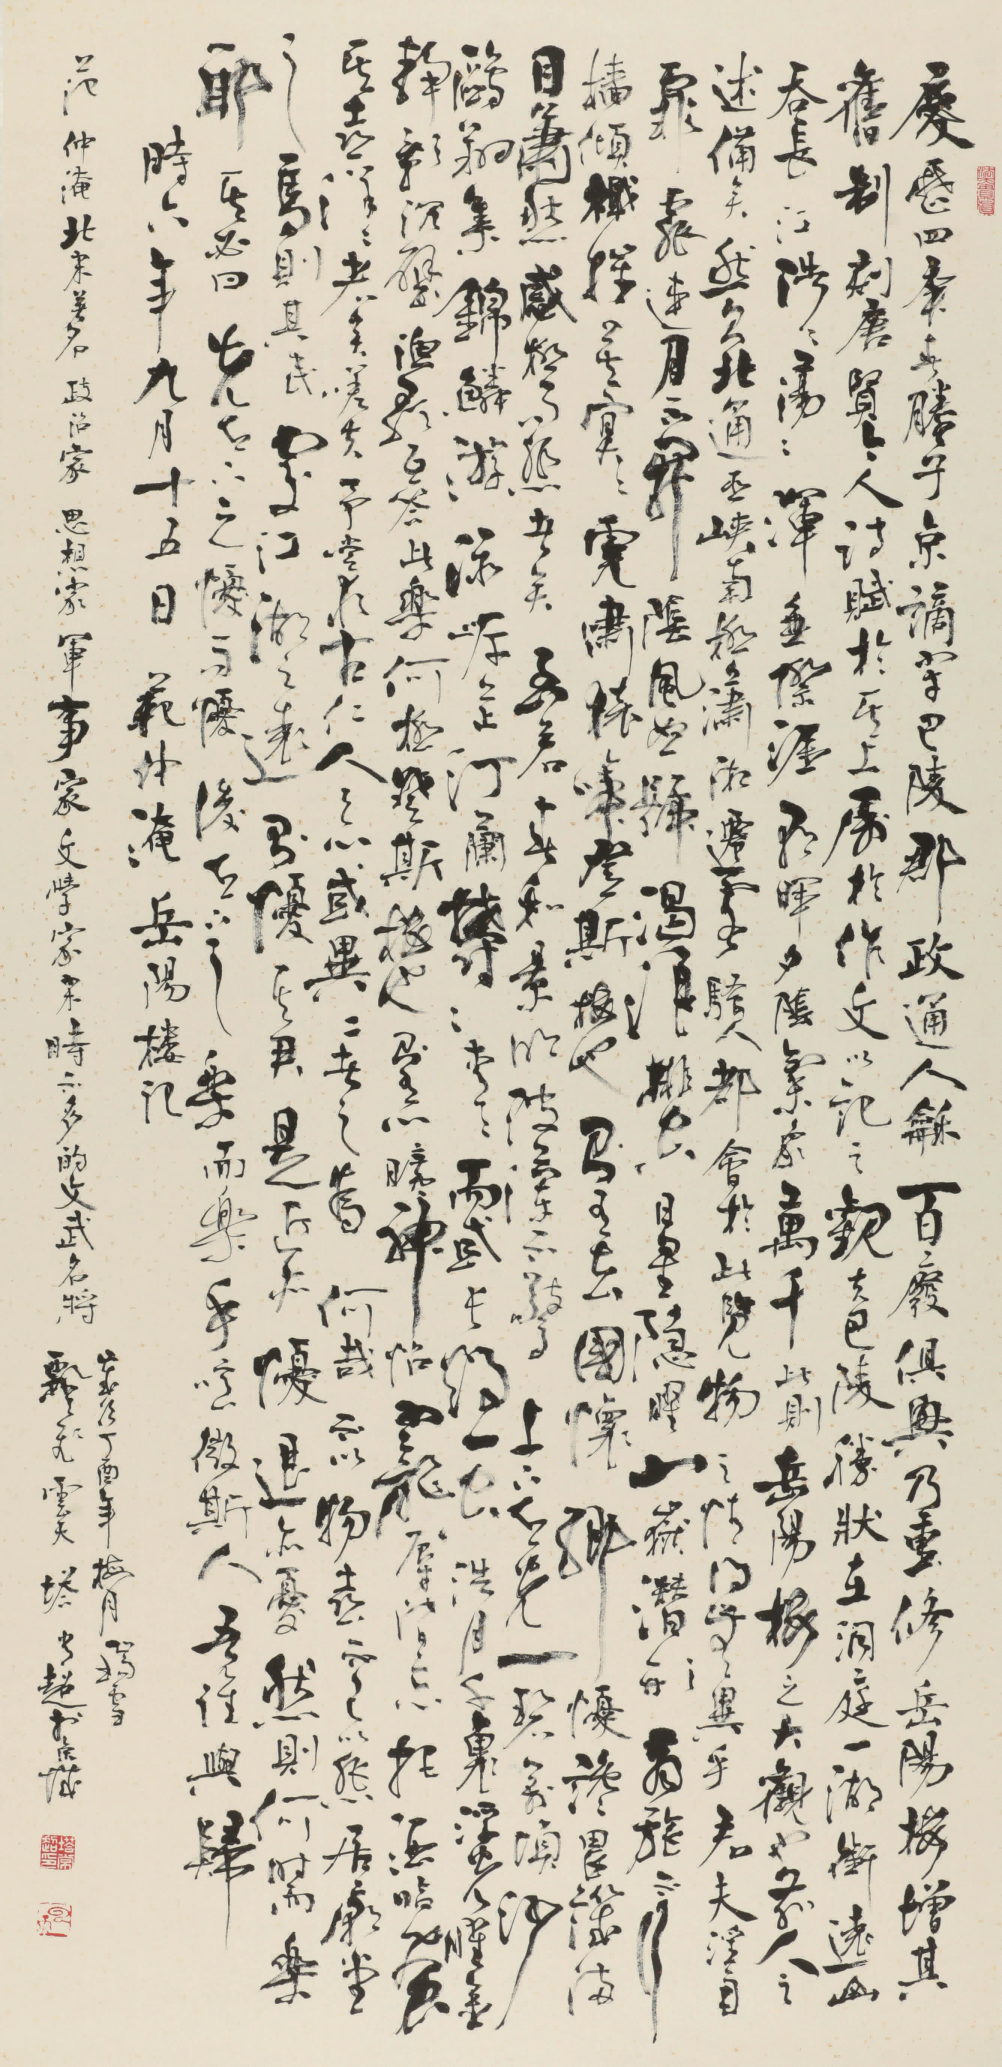 慶歷四年春滕子京謫守巴陵郡政通人龢百廢俱興乃重修岳陽樓增其
舊制刻唐賢今人詩賦於其上屬於作文以記之觀夫巴陵勝狀在洞庭一湖銜遠山
吞長江浩〻蕩〻渾無際涯朝暉夕陰氣象萬千此則岳陽樓之大觀也前人之
述備矣然則北通巫峽南極瀟湘遷客騷人都會於此覽物之情得無異乎若夫淫雨
霏霏連月不開陰風怒號濁浪排空日星隱曜山嶽潛形商旅不行
檣傾檝摧薄暮冥〻虎嘯猿啼登斯樓也則有去國懷鄉憂讒畏譏滿
目蕭然感極而悲者矣至若春和景明波瀾不驚上下天光一碧萬頃沙
鷗翔集錦鱗游泳岸芷汀蘭鬱〻青〻而或長煙一空浩月千里浮光耀金
靜影沉璧漁歌互答此樂何極登斯樓也則有心曠神怡寵辱皆忘把酒臨風
其喜洋〻者矣嗟夫予嘗求古仁人之心或異二者之為何哉不以物喜不以己悲居廟堂
之高則憂其民處江湖之遠則憂其君是進亦憂退亦憂然則何時而樂
耶其必曰先天下之憂而憂後天下之樂而樂乎噫微斯人吾誰與歸
時六年九月十五日 范仲淹岳陽樓記
范仲淹北宋著名政治家思想家軍事家文學家宋時不多的文武名將
歲次丁酉年梅月瑞雪
飄飛雲天塔常超書於京城